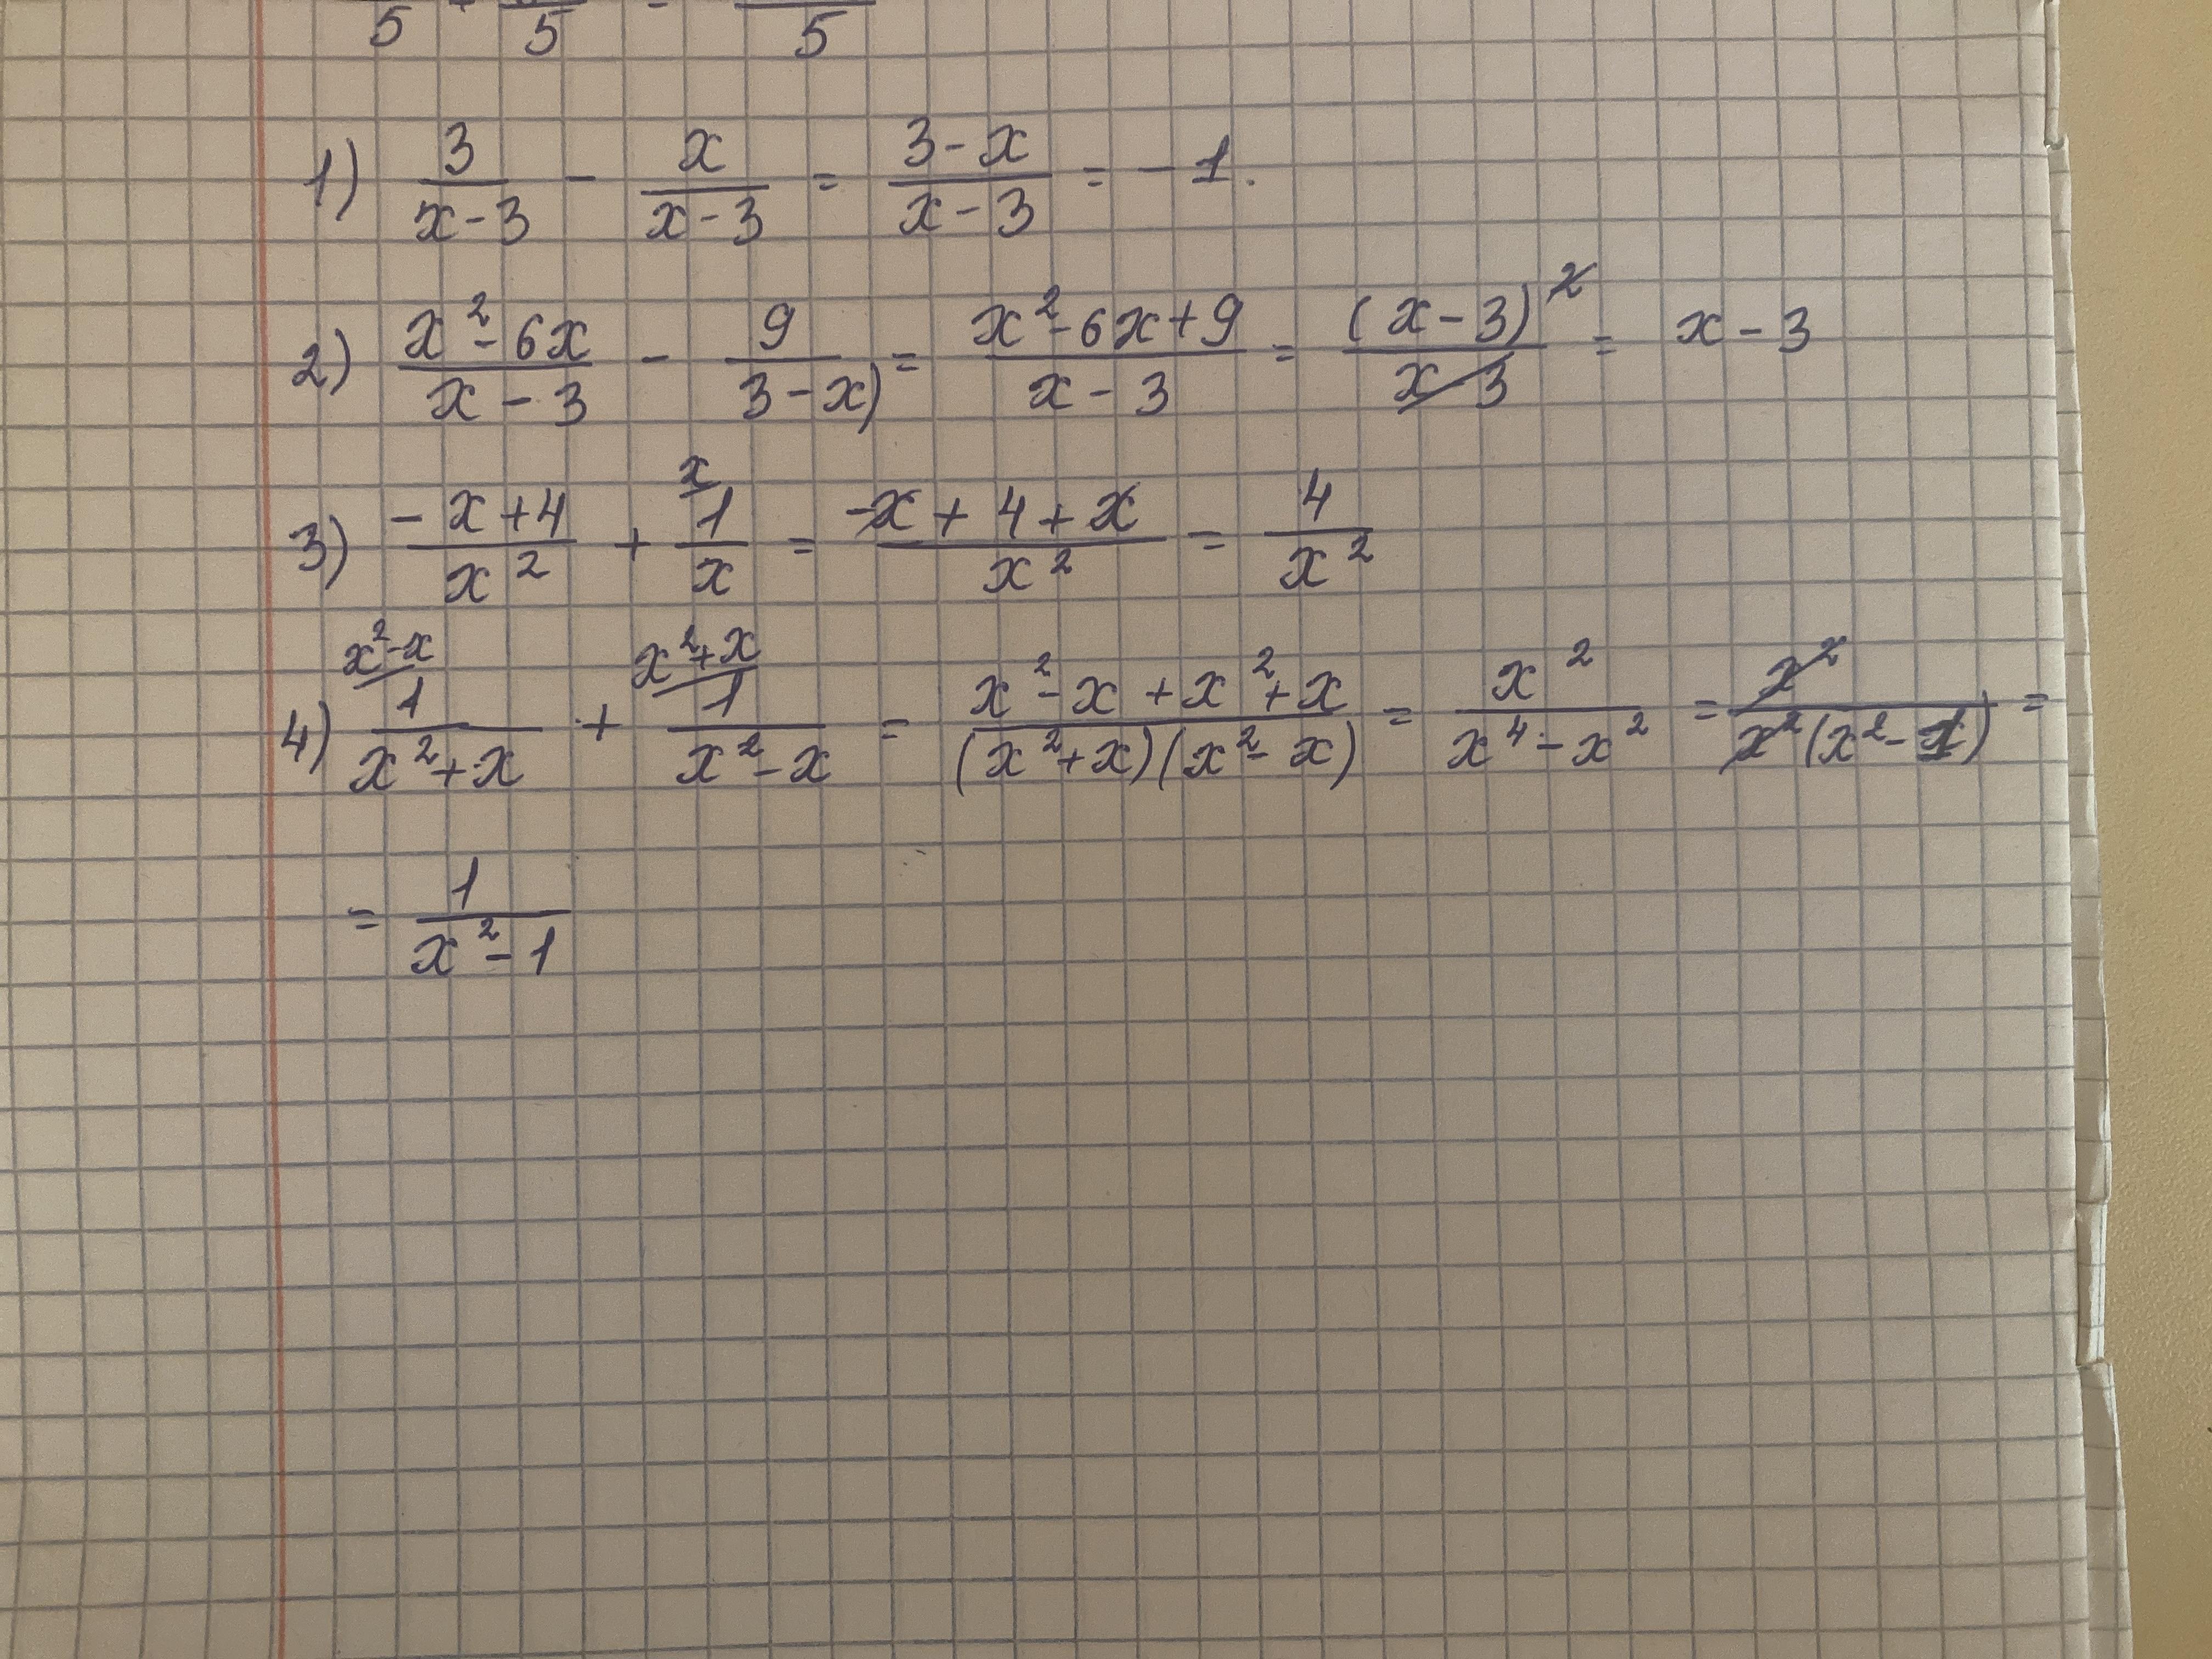 5 5 5
1) 3/(x-3) - x/(x-3) = (3-x)/(x-3) = -1.
2) (x²-6x)/(x-3) - 9/(3-x) = (x²-6x+9)/(x-3) = (x-3)²/(x-3) = x-3
3) (-x+4)/x² + 1/x (x = (-x+4+x)/x² = 4/x²
4) x²-x 1/(x²+x) + x²+x 1/(x²-x) = (x²-x+x²+x)/((x²+x)(x²-x)) = x²/(x⁴-x²) = x²/(x²(x²-1)) =
= 1/(x²-1)